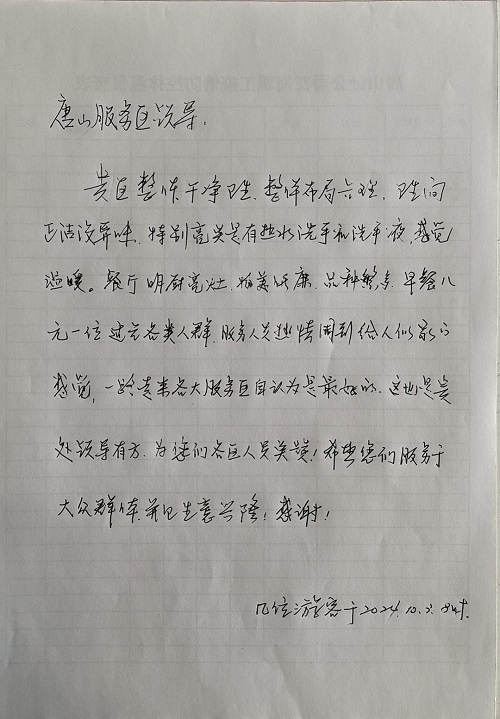 唐山服务区领导,
贵区整体干净卫生、整体布局合理、卫生间
正洁没异味、特别亮点是有热水洗手和洗手液,感觉
温暖。餐厅明厨亮灶、物美价廉、品种繁多、早餐八
元一位适合各类人群、服务人员热情周到给人似家的
感觉,一路走来各大服务区自认为是最好的、这也是贵
处领导有方、为您们各区人员点赞!希望您们服务于
大众群体、并祝生意兴隆!感谢!
几位游客于2024.10.3.